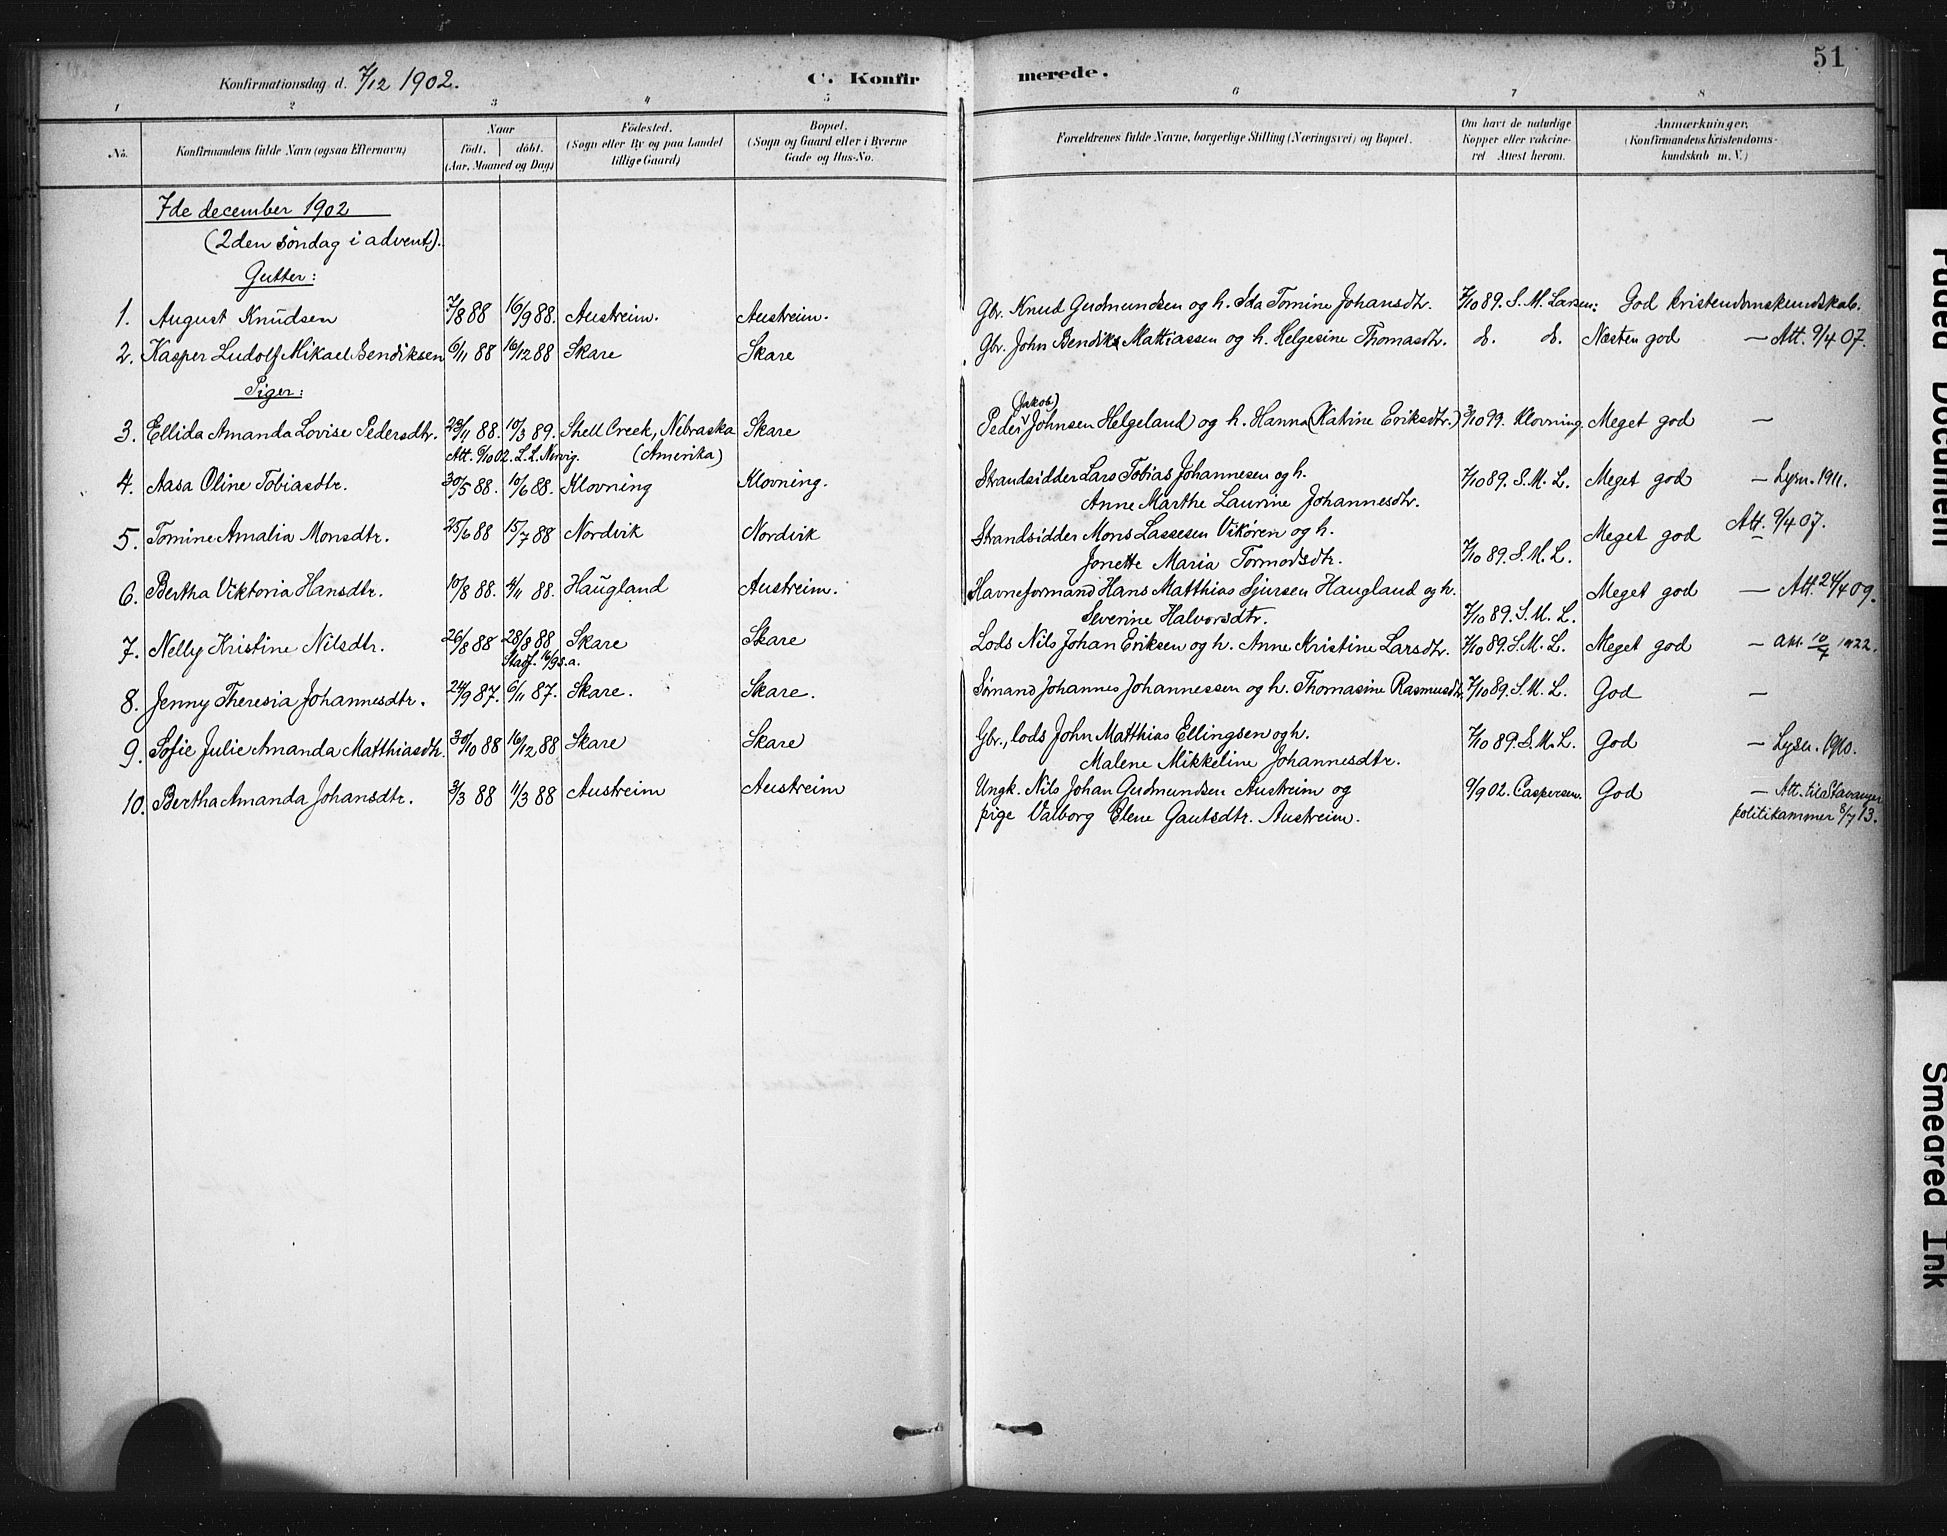 51
Konfirmationsdag d. 7/12 1902. C. Konfirmerede.
1 2 3 4 5 6 7 8
No. Konfirmandens fulde Navn (ogsaa Efternavn) Naar født. døbt. (Aar, Maaned og Dag) Fødested. (Sogn eller By og paa Landet tillige Gaard) Bopæl. (Sogn og Gaard eller i Byerne Gade og Hus-No. Forældrenes fulde Navne, borgerlige Stilling (Næringsvei) og Bopæl. Om havt de naturlige Kopper eller vakcineret Attest herom. Anmærkninger. (Konfirmandens Kristendomskundskab m. V.)
7de december 1902
(2den søndag i advent).
Gutter:
1. August Knudsen 7/8 88 16/9 88. Austreim. Austreim. Gbr. Knud Gudmundsen og h. Ida Tomine Johansdtr. 7/10 89. S. M. Larsen: God kristendomskundskab.
2. Kasper Ludolf Mikael Bendiksen 6/11 88 16/12 88 Skare Skare Gbr. John Bendiks Mattiassen og h. Helgesine Thomasdtr. d. d. Næsten god — Att. 9/4 07.
Piger:
(Jakob)
3. Ellida Amanda Lovise Pedersdtr. 23/11 88. 10/3 89. Shell Creek, Nebraska Skare Peder Johnsen Helgeland og h. Hanna (Katrine Eriksdtr.) 3/10 99. Klovning. Meget god —
Att. 9/10 02. L. L. Nervig. (Amerika)
4. Aasa Oline Tobiasdtr. 30/5 88. 10/6 88. Klovning Klovning. Strandsidder Lars Tobias Johannesen og h. 7/10 89. S. M. L. Meget god — Lysn. 1911.
Anne Marthe Laurine Johannesdtr.
5. Tomine Amalia Monsdtr. 25/6 88 15/7 88 Nordvik Nordvik Strandsidder Mons Lassesen Vikøren og h. Meget god Att. 9/4 07.
Jonette Maria Tormodsdtr. 7/10 89. S. M. L.
6. Bertha Viktoria Hansdtr. 10/8 88. 4/11 88. Haugland Austreim. Havneformand Hans Matthias Sjursen Haugland og h. Meget god — Att. 24/4 09.
Severine Halvorsdtr. 7/10 89. S. M. L.
7. Nelly Kristine Nilsdtr. 26/8 88 28/8 88 Skare Skare Lods Nils Johan Eriksen og h. Anne Kristine Larsdtr. 7/10 89. S. M. L. Meget god — Att. 10/7 1922.
Stadf. 16/9 s. a.
8. Jenny Theresia Johannesdtr. 24/9 87. 6/11 87. Skare. Skare. Sømand Johannes Johannessen og h. Thomasine Rasmusdtr. 7/10 89. S. M. L. God —
9. Sofie Julie Amanda Matthiasdtr. 30/10 88 16/12 88 Skare Skare Gbr., lods John Matthias Ellingsen og h. 7/10 89. S. M. L. God — Lysn. 1910.
Malene Mikkeline Johannesdtr.
10. Bertha Amanda Johansdtr. 3/3 88 11/3 88 Austreim Austreim Ungk. Nils Johan Gudmundsen Austreim og 9/9 02. Caspersen. God — Att. til Stavanger
pige Valborg Elene Gautsdtr. Austreim. politikammer 8/7 13.
Faded Document
Smeared Ink